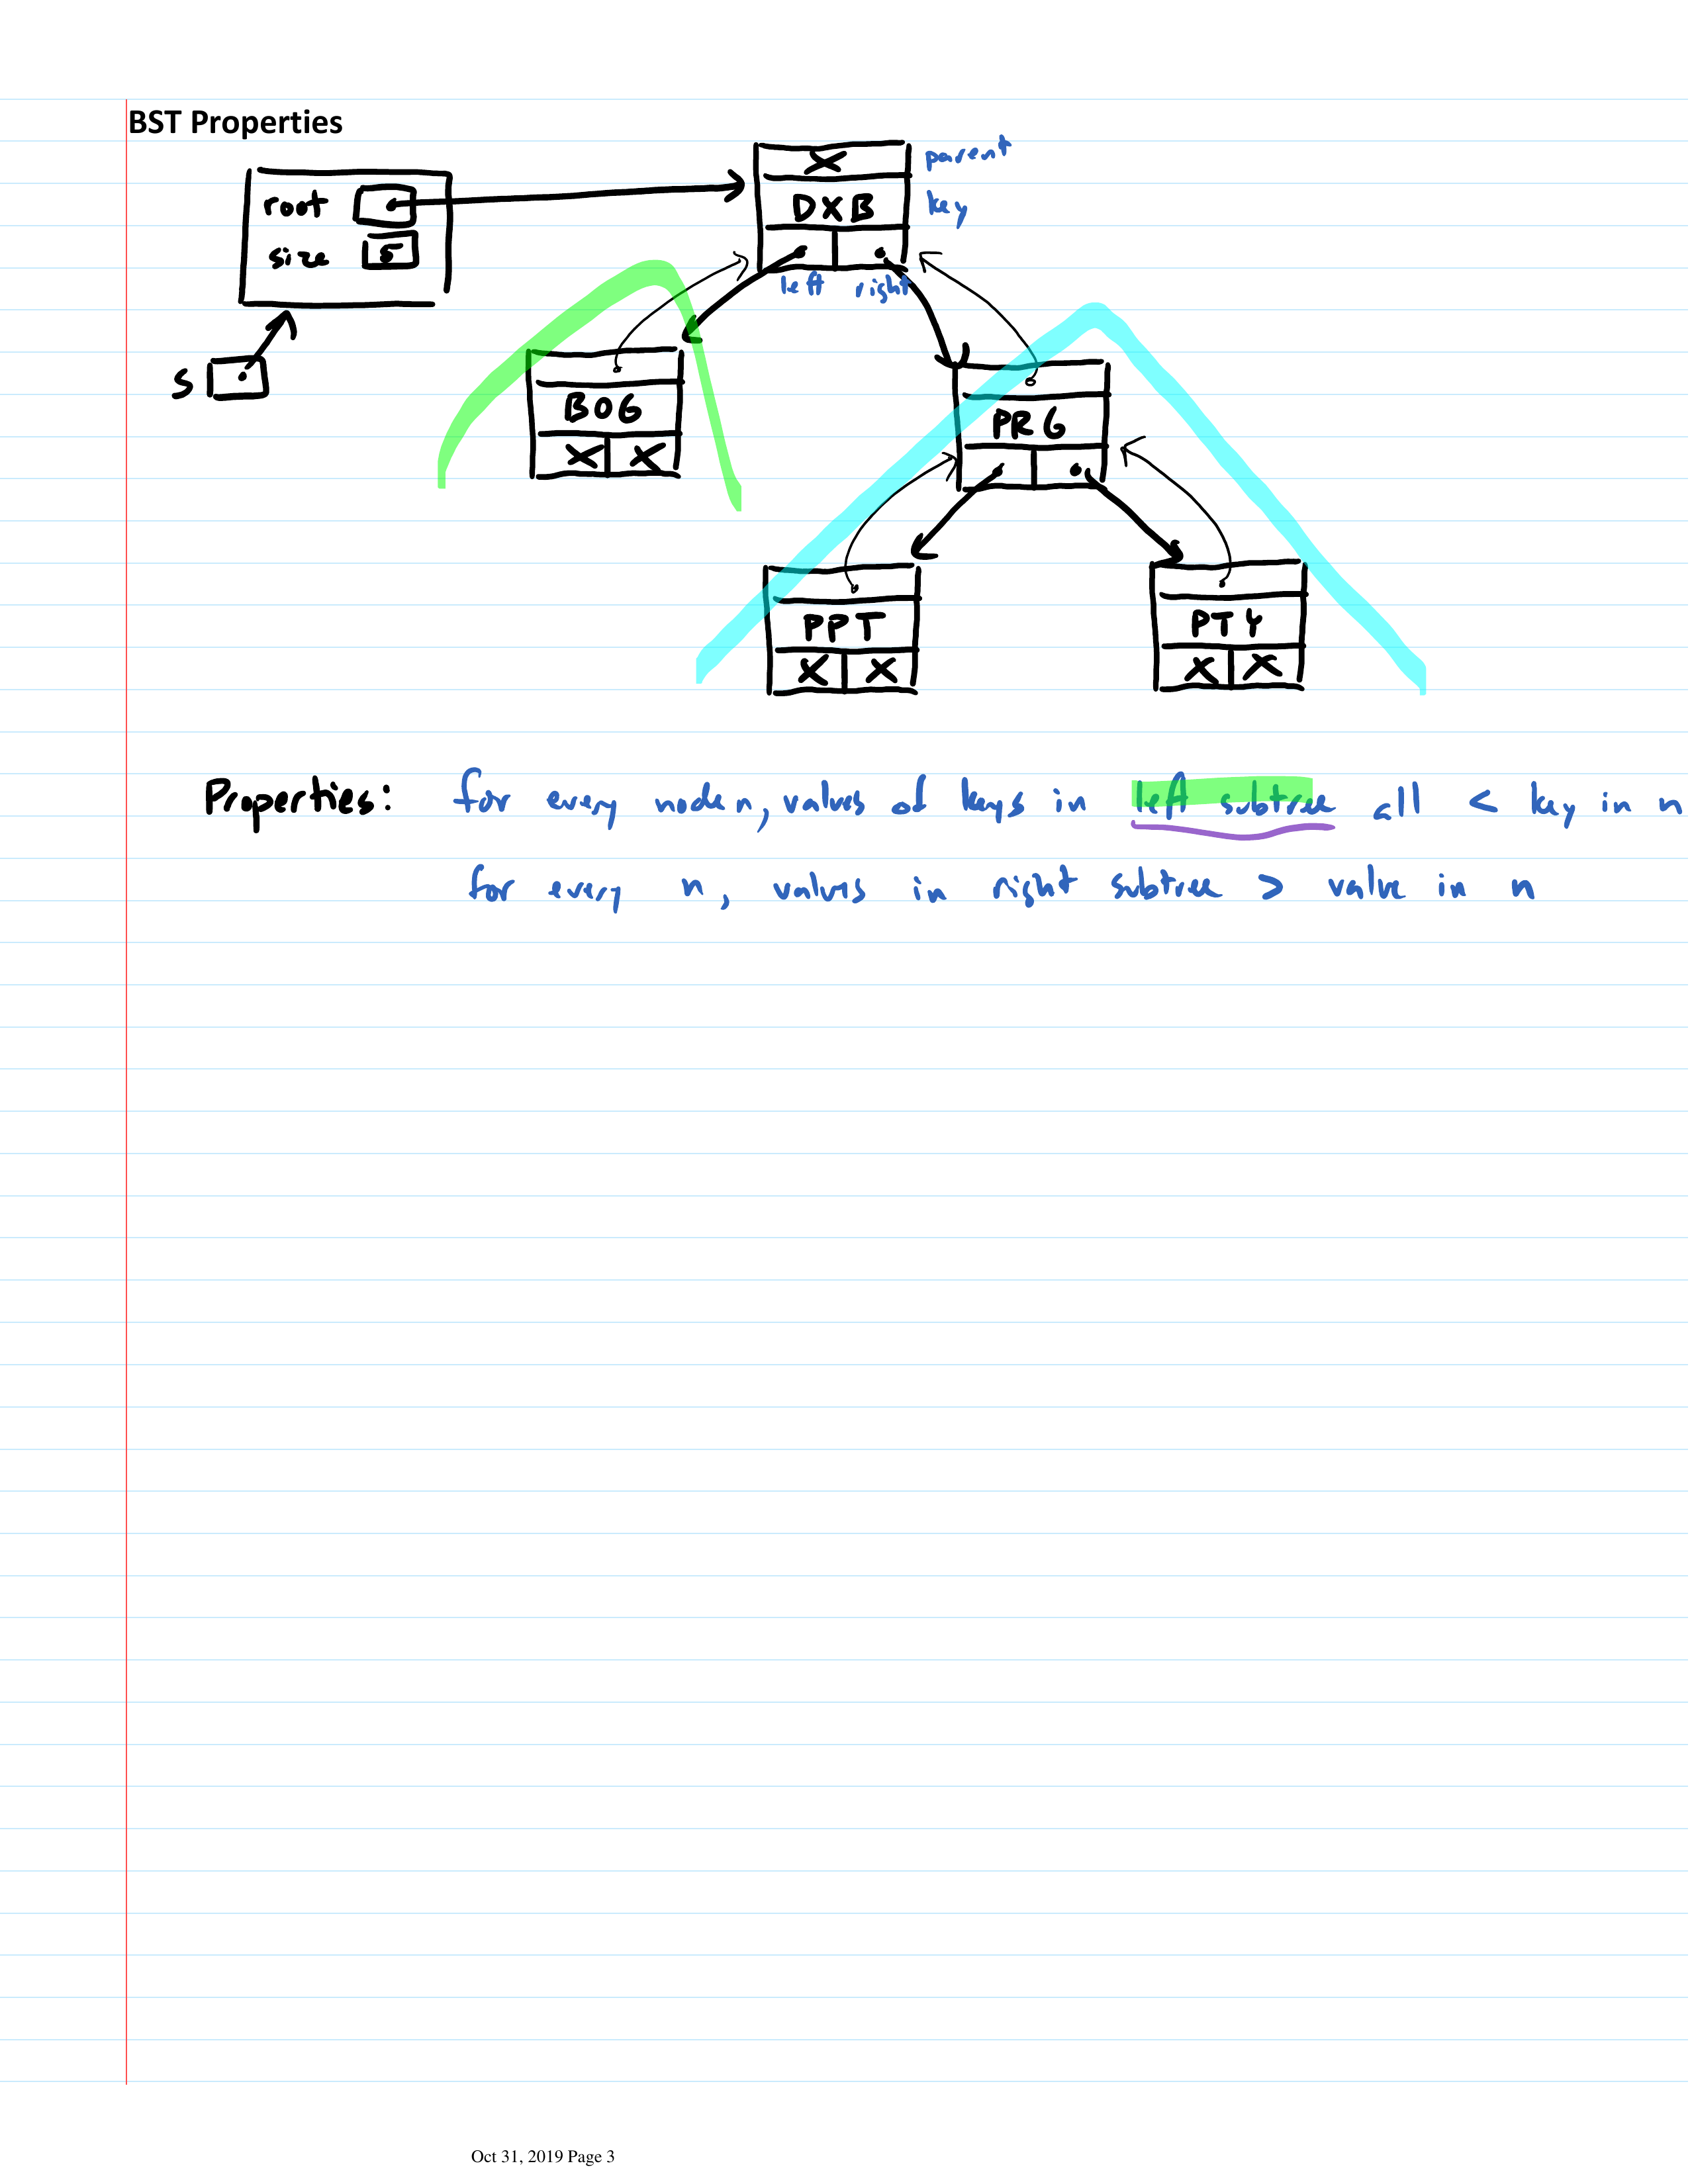 BST Properties
X parent
root DXB key
size 5
left right
S
BOG
PRG
X X
PPT PTY
X X X X
Properties: for every node n, values of keys in left subtree all < key in n
for every n, values in right subtree > value in n
Oct 31, 2019 Page 3